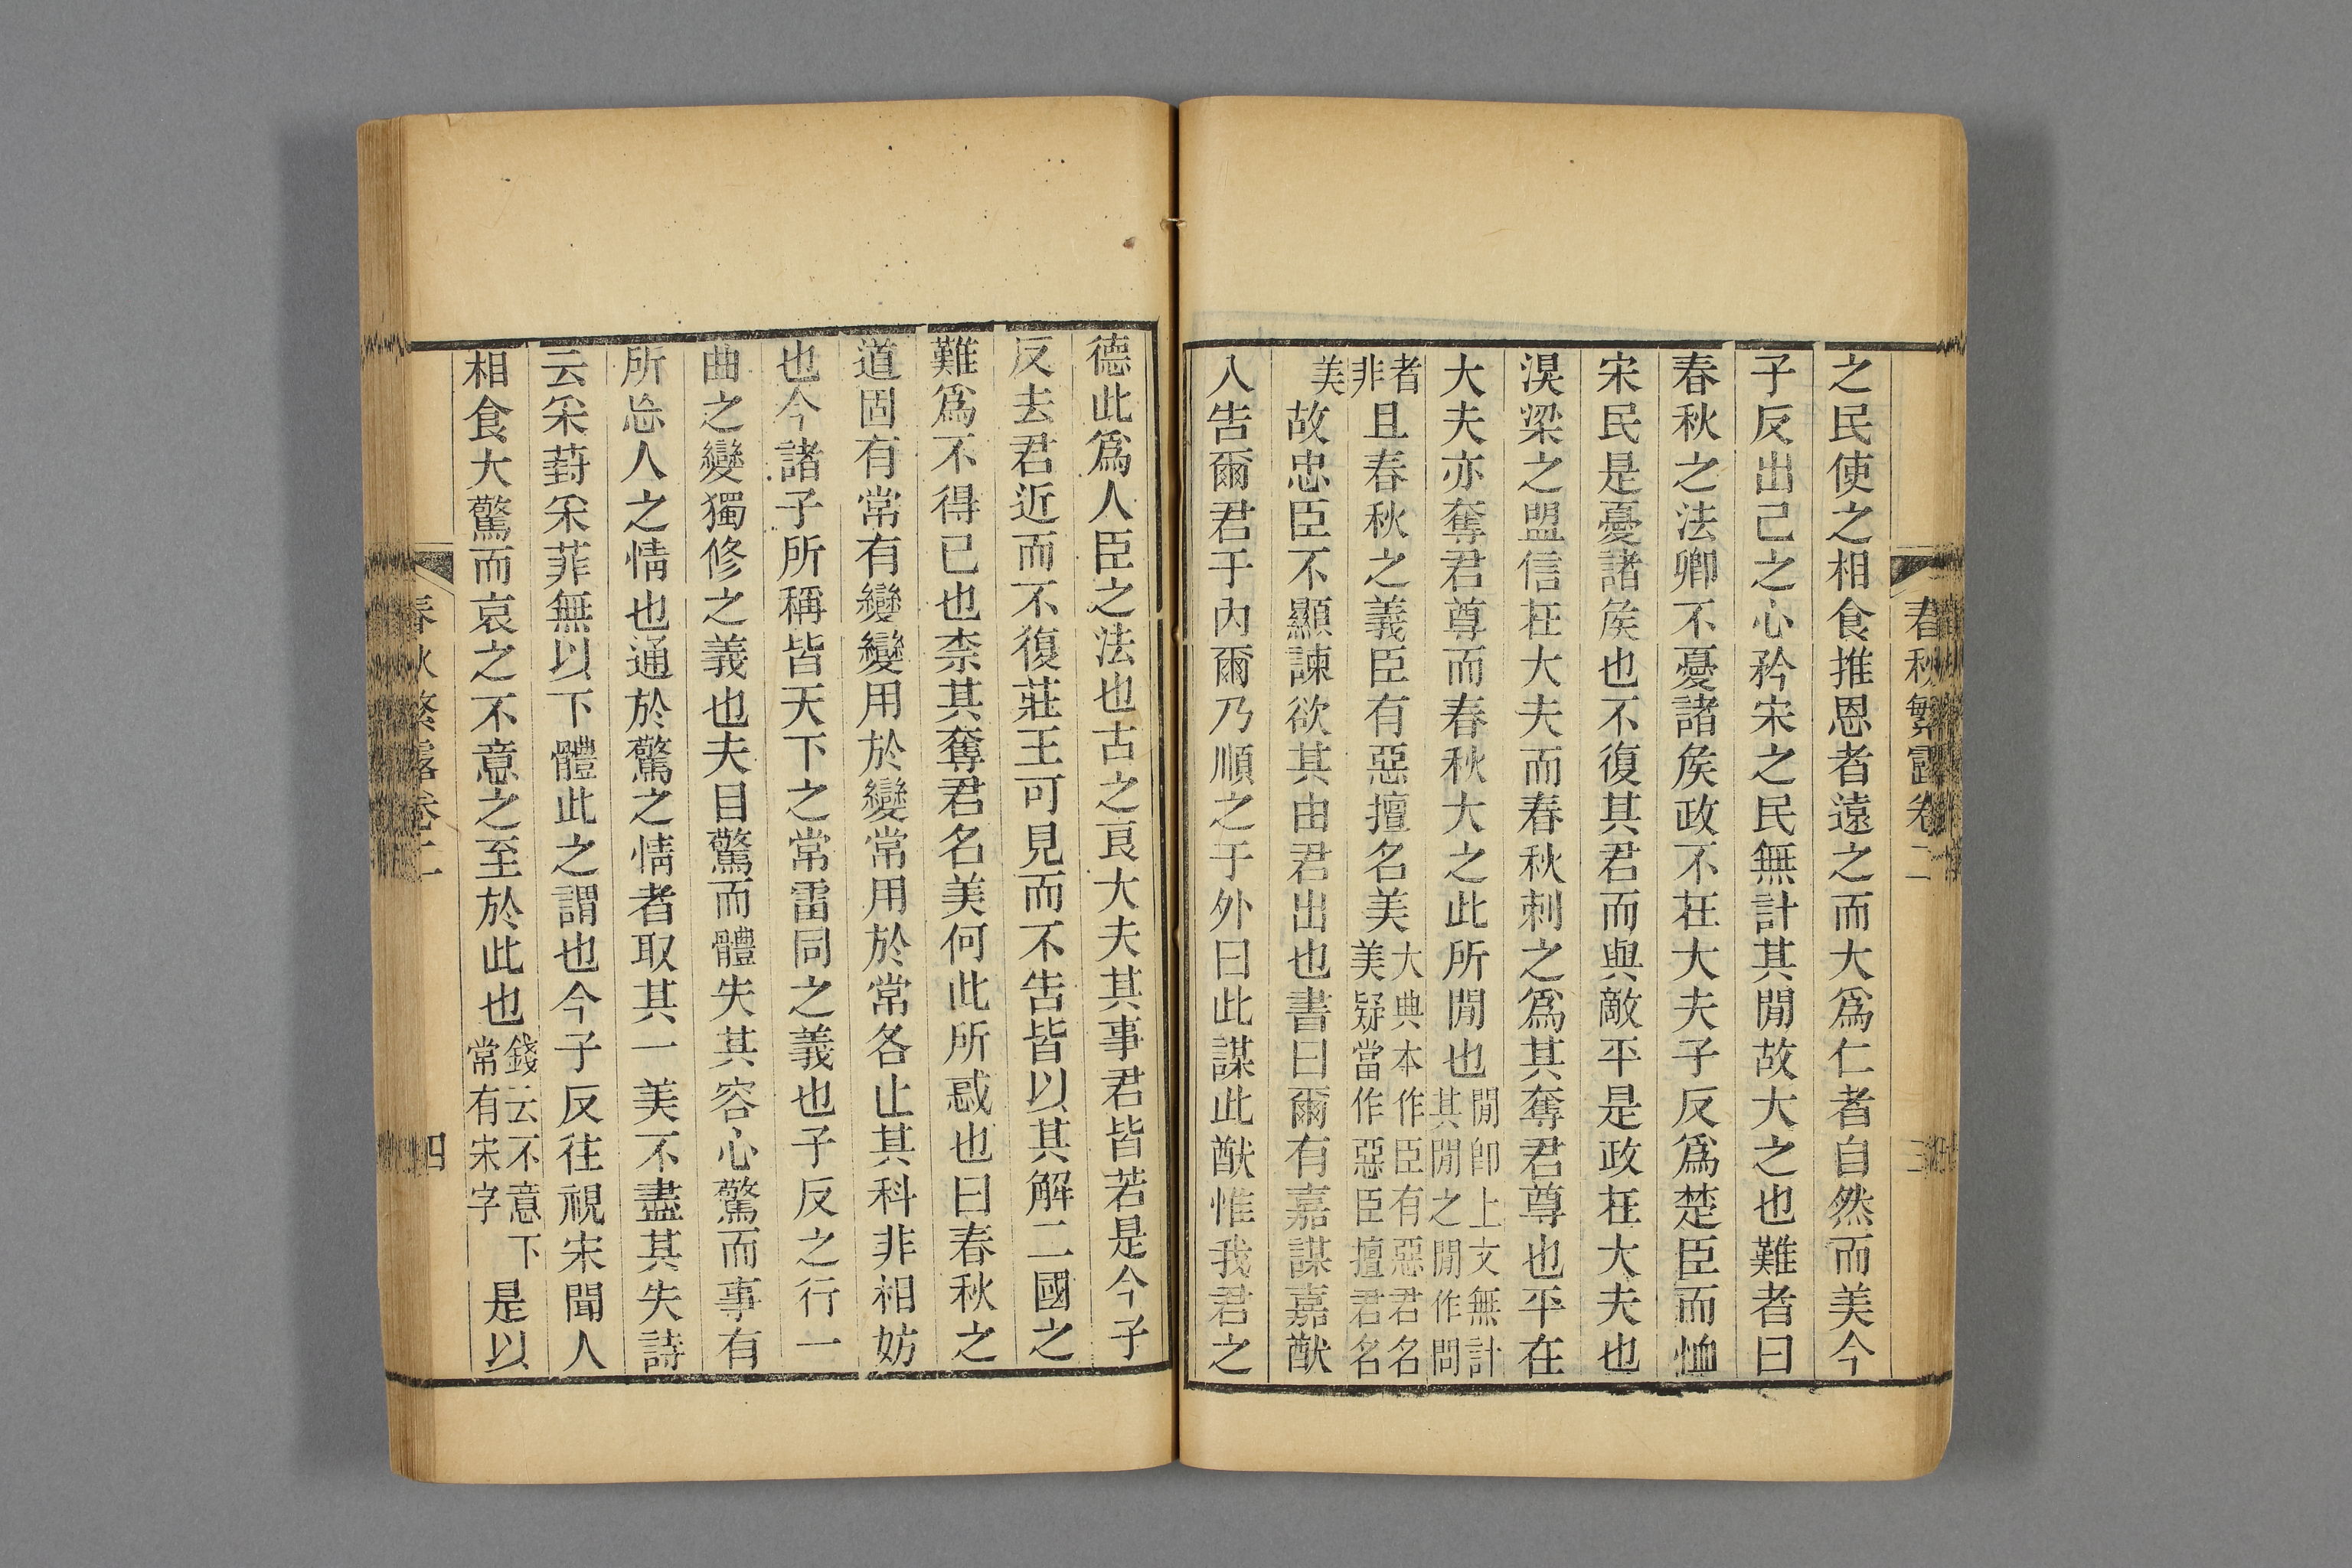 春秋繁露卷二
三
之民使之相食推恩者遠之而大爲仁者自然而美今
子反出己之心矜宋之民無計其閒故大之也難者曰
春秋之法卿不憂諸矦政不在大夫子反爲楚臣而恤
宋民是憂諸矦也不復其君而與敵平是政在大夫也
湨梁之盟信在大夫而春秋刺之爲其奪君尊也平在
大夫亦奪君尊而春秋大之此所閒也閒卽上文無計其閒之閒作問
者非且春秋之義臣有惡擅名美大典本作臣有惡君名美疑當作惡臣擅君名
美故忠臣不顯諫欲其由君出也書曰爾有嘉謀嘉猷
入告爾君于內爾乃順之于外曰此謀此猷惟我君之
德此爲人臣之法也古之良大夫其事君皆若是今子
反去君近而不復莊王可見而不告皆以其解二國之
難爲不得已也柰其奪君名美何此所惑也曰春秋之
道固有常有變變用於變常用於常各止其科非相妨
也今諸子所稱皆天下之常雷同之義也子反之行一
曲之變獨修之義也夫目驚而體失其容心驚而事有
所忘人之情也通於驚之情者取其一美不盡其失詩
云采葑采菲無以下體此之謂也今子反往視宋聞人
相食大驚而哀之不意之至於此也錢云不意下常有宋字是以
春秋繁露卷二
四